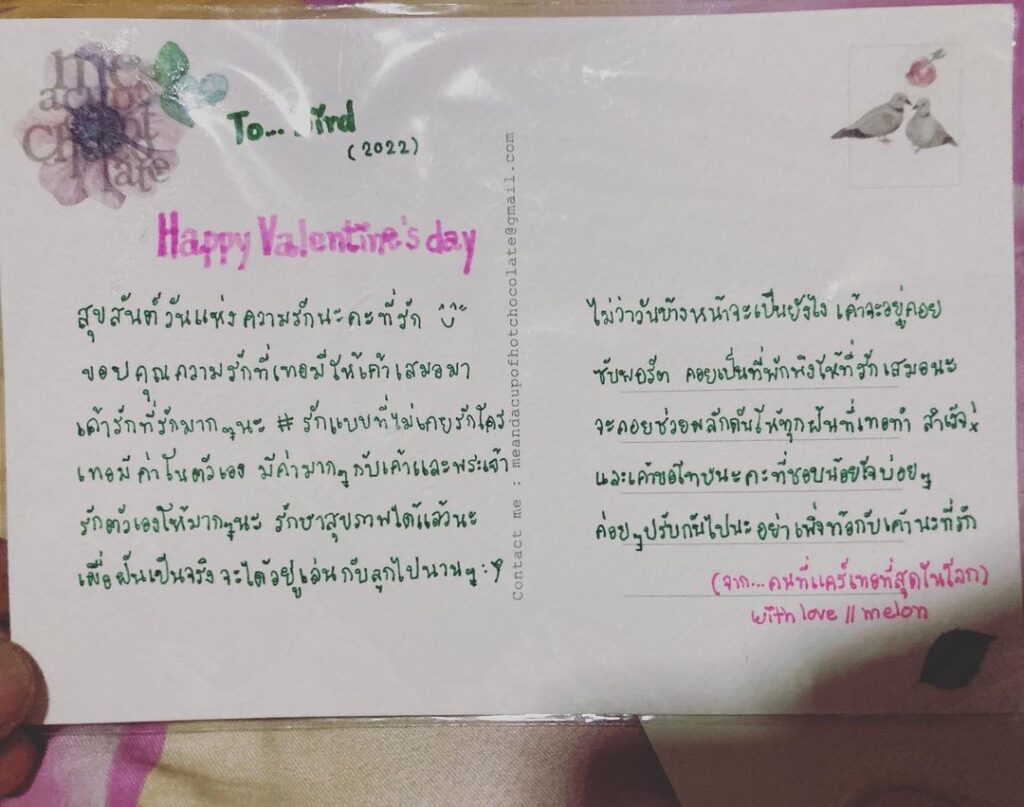 me &
a cup of
hot
Chocolate
To... Bird
(2022)
Happy Valentine's day
สุขสันต์วันแห่งความรักนะคะที่รัก
ขอบคุณความรักที่เทอมีให้เค้าเสมอมา
เค้ารักที่รักมากๆนะ #รักแบบที่ไม่เคยรักใคร
เทอมีค่าในตัวเอง มีค่ามากๆกับเค้าและพระเจ้า
รักตัวเองให้มากๆนะ รักษาสุขภาพได้แล้วนะ
เมื่อฝันเป็นจริง จะได้อยู่เล่นกับลูกไปนานๆ :)
Contact me : meandacupofhotchocolate@gmail.com
ไม่ว่าวันข้างหน้าจะเป็นยังไง เค้าจะอยู่คอย
ซับพอร์ต คอยเป็นที่พักพิงให้ที่รักเสมอนะ
จะคอยช่วยผลักดันให้ทุกฝันที่เทอทำ สำเร็จ
และเค้าขอโทษนะคะที่ชอบน้อยใจบ่อยๆ
ค่อยๆปรับกันไปนะ อย่าเพิ่งท้อกับเค้านะที่รัก
(จาก...คนที่แคร์เทอที่สุดในโลก)
with love || melon